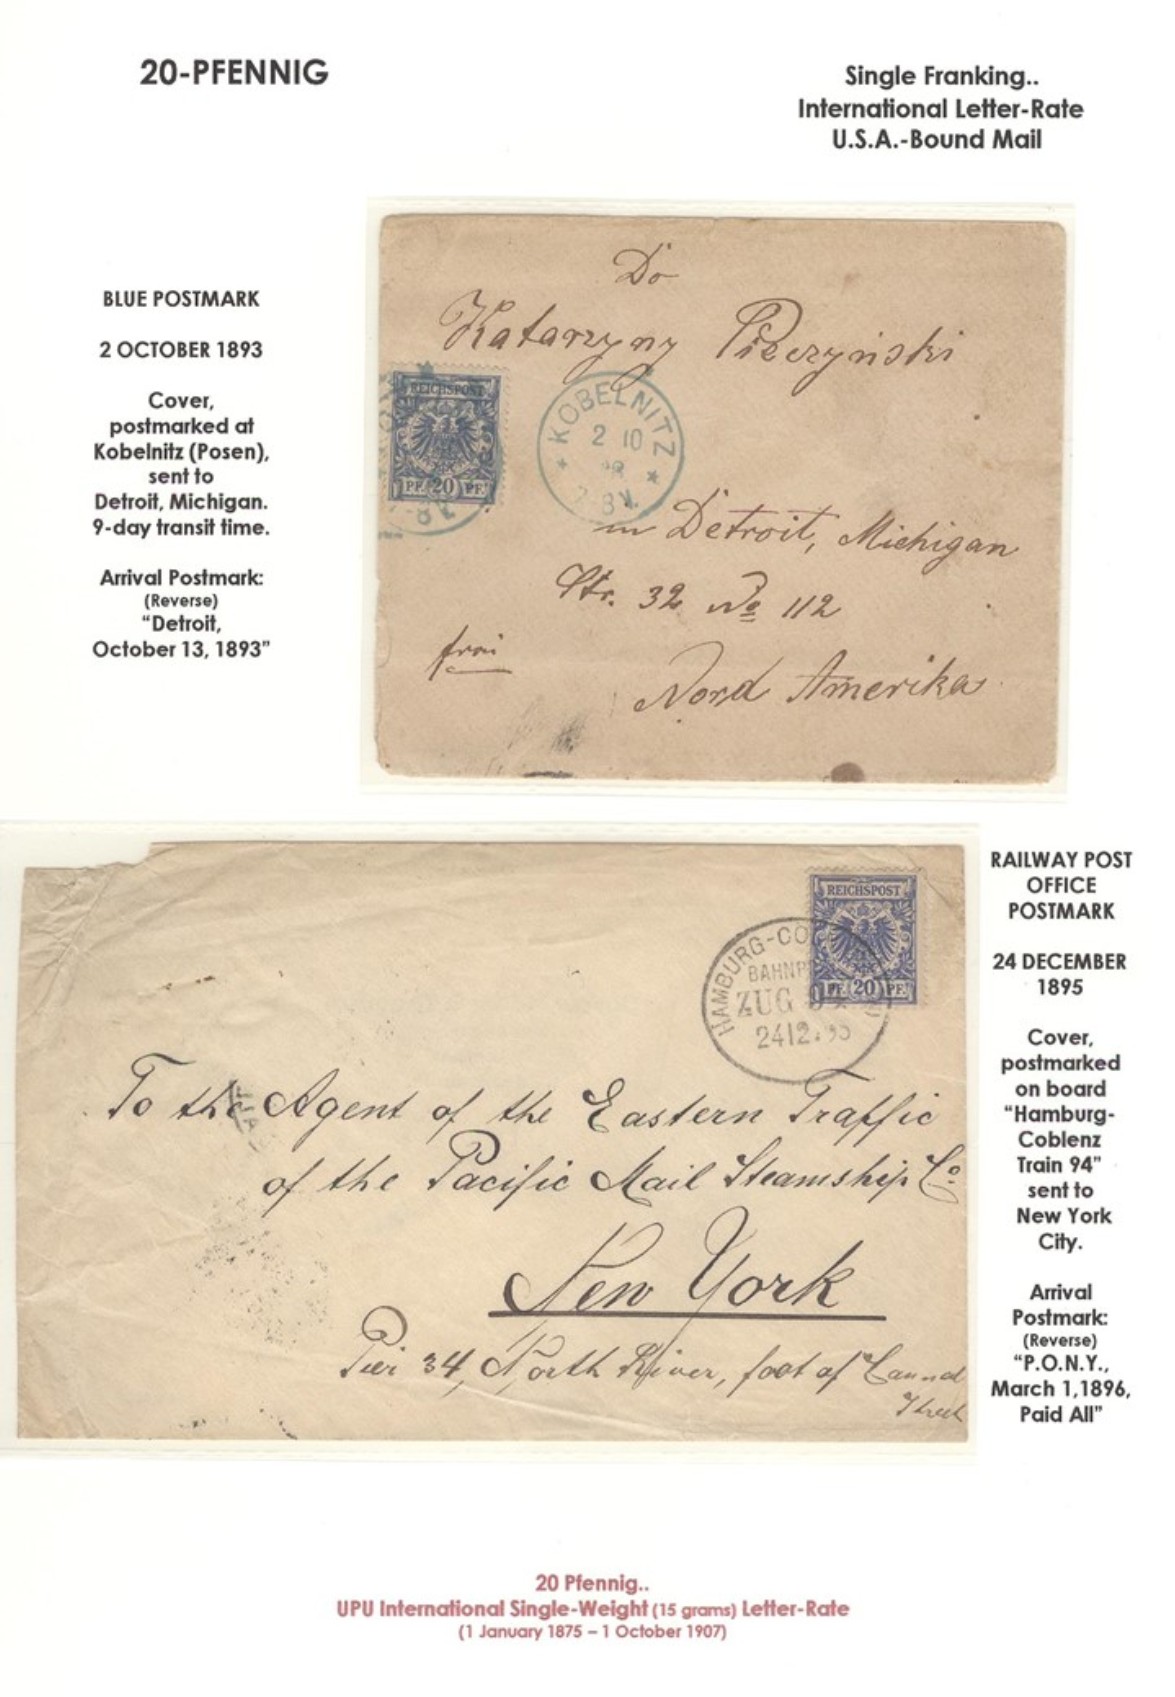 20-PFENNIG
Single Franking..
International Letter-Rate
U.S.A.-Bound Mail
BLUE POSTMARK
2 OCTOBER 1893
Cover,
postmarked at
Kobelnitz (Posen),
sent to
Detroit, Michigan.
9-day transit time.
Arrival Postmark:
(Reverse)
"Detroit,
October 13, 1893"
Do
Katarzyny Pieczyński
REICHSPOST
PF. 20 PF.
KOBELNITZ
2 10
7-8V.
in Detroit, Michigan
Str. 32 No 112
frei
Nord Amerika
RAILWAY POST
OFFICE
POSTMARK
24 DECEMBER
1895
Cover,
postmarked
on board
"Hamburg-
Coblenz
Train 94"
sent to
New York
City.
Arrival
Postmark:
(Reverse)
"P.O.N.Y.,
March 1,1896,
Paid All"
REICHSPOST
PF. 20 PF.
HAMBURG-CO
BAHNP
ZUG 94
24 12 95
To the Agent of the Eastern Traffic
of the Pacific Mail Steamship Co
New York
Pier 34, North River, foot of Cannal
Street
20 Pfennig..
UPU International Single-Weight (15 grams) Letter-Rate
(1 January 1875 – 1 October 1907)